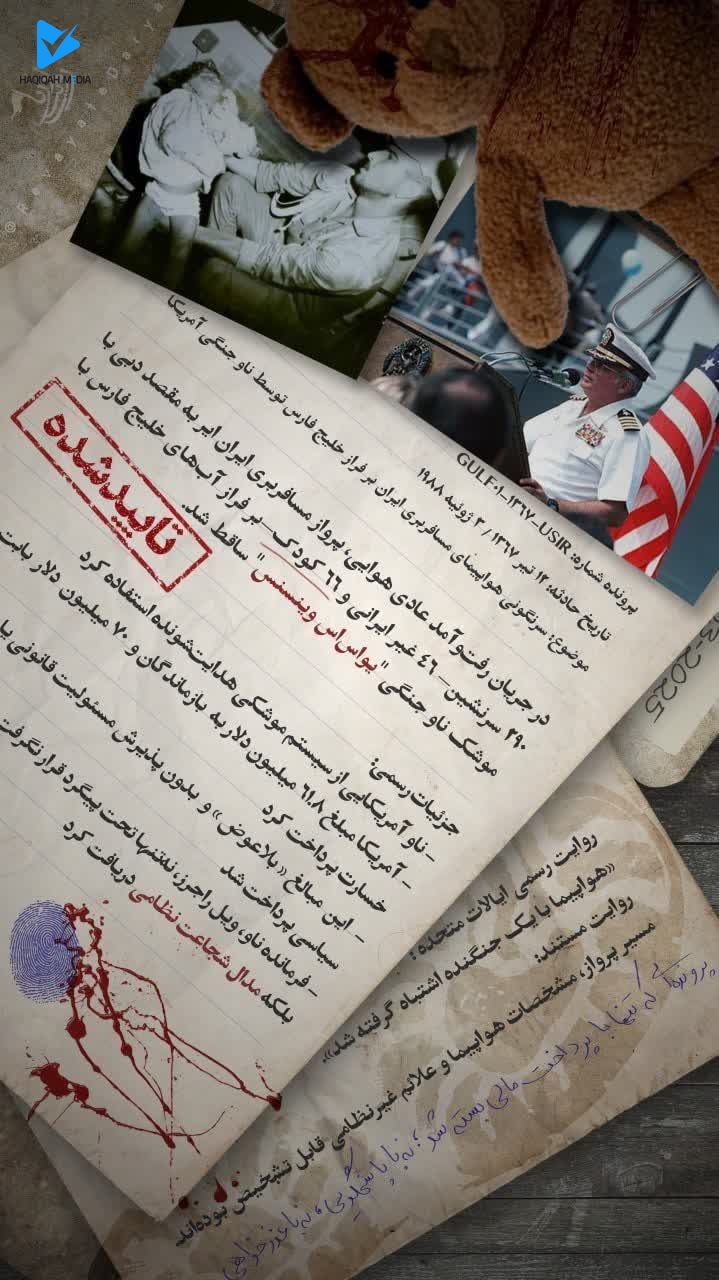 HAQIQAH MEDIA
@RevayateDarya
پرونده شماره: GULF-۰۱-۱۳۶۷-USIR
تاریخ حادثه: ۱۲ تیر ۱۳۶۷ / ۳ ژوئیه ۱۹۸۸
موضوع: سرنگونی هواپیمای مسافربری ایران بر فراز خلیج فارس توسط ناو جنگی آمریکا
در جریان رفت‌وآمد عادی هوایی، پرواز مسافربری ایران ایر به مقصد دبی با
۲۹۰ سرنشین_ ۴۶ غیر ایرانی و ۶۶ کودک_ بر فراز آب‌های خلیج فارس با
موشک ناو جنگی "یو‌اس‌اس وینسنس" ساقط شد.
تایید شده
جزئیات رسمی:
- ناو آمریکایی از سیستم موشکی هدایت‌شونده استفاده کرد
- آمریکا مبلغ ۶۱.۸ میلیون دلار به بازماندگان و ۷۰ میلیون دلار بابت
خسارت پرداخت کرد
- این مبالغ «بلاعوض» و بدون پذیرش مسئولیت قانونی یا
سیاسی پرداخت شد
- فرمانده ناو، ویل راجرز، نه‌تنها تحت پیگرد قرار نگرفت
بلکه مدال شجاعت نظامی دریافت کرد
2025
روایت رسمی ایالات متحده:
«هواپیما با یک جنگنده اشتباه گرفته شد».
روایت مستند:
مسیر پرواز، مشخصات هواپیما و علائم غیرنظامی قابل تشخیص بوده‌اند.
پرونده‌ای که تنها با پرداخت مالی بسته شد؛ نه با پاسخگویی، نه با عذرخواهی